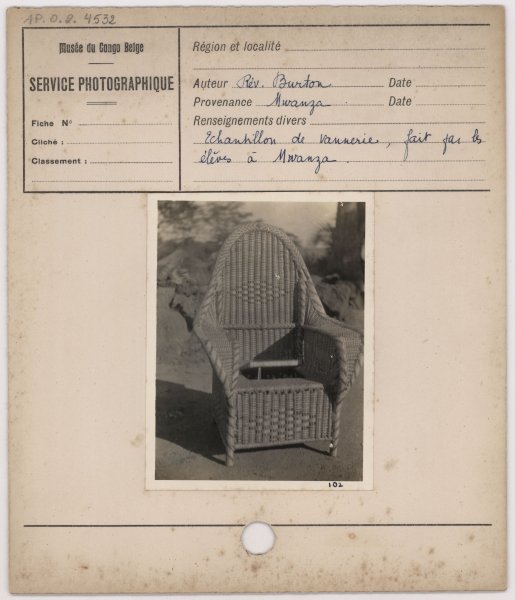 AP.0.2.4532
Musée du Congo Belge
SERVICE PHOTOGRAPHIQUE
Fiche N°
Cliché :
Classement :
Région et localité
Auteur Rév. Burton Date
Provenance Mwanza Date
Renseignements divers
Echantillon de vannerie, fait par les
élèves à Mwanza.
102